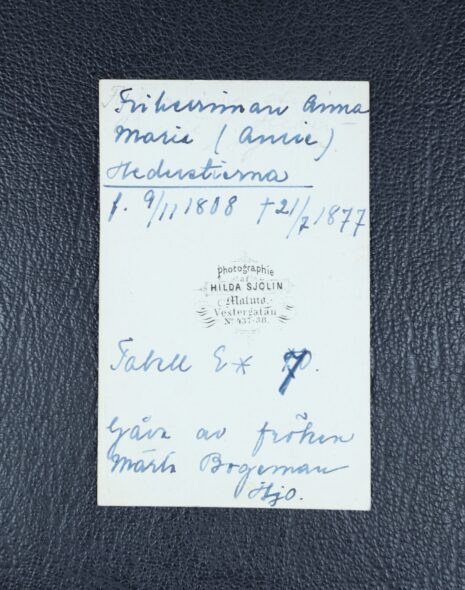 Friherrinnan Anna
Marie (Annie)
Hederstierna
f. 9/11 1808 †21/7 1877
photographie
af
HILDA SJÖLIN
Malmö.
Vestergatan
No 437-38.
Tabell E* 7.
Gåva av fröken
Märta Bogeman
Hjo.